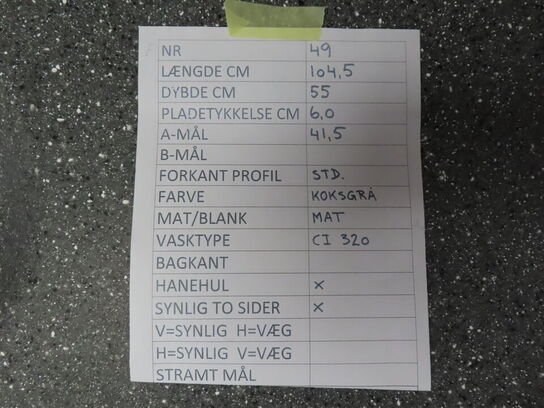 NR 49
LÆNGDE CM 104,5
DYBDE CM 55
PLADETYKKELSE CM 6,0
A-MÅL 41,5
B-MÅL
FORKANT PROFIL STD.
FARVE KOKSGRÅ
MAT/BLANK MAT
VASKTYPE CI 320
BAGKANT
HANEHUL x
SYNLIG TO SIDER x
V=SYNLIG H=VÆG
H=SYNLIG V=VÆG
STRAMT MÅL